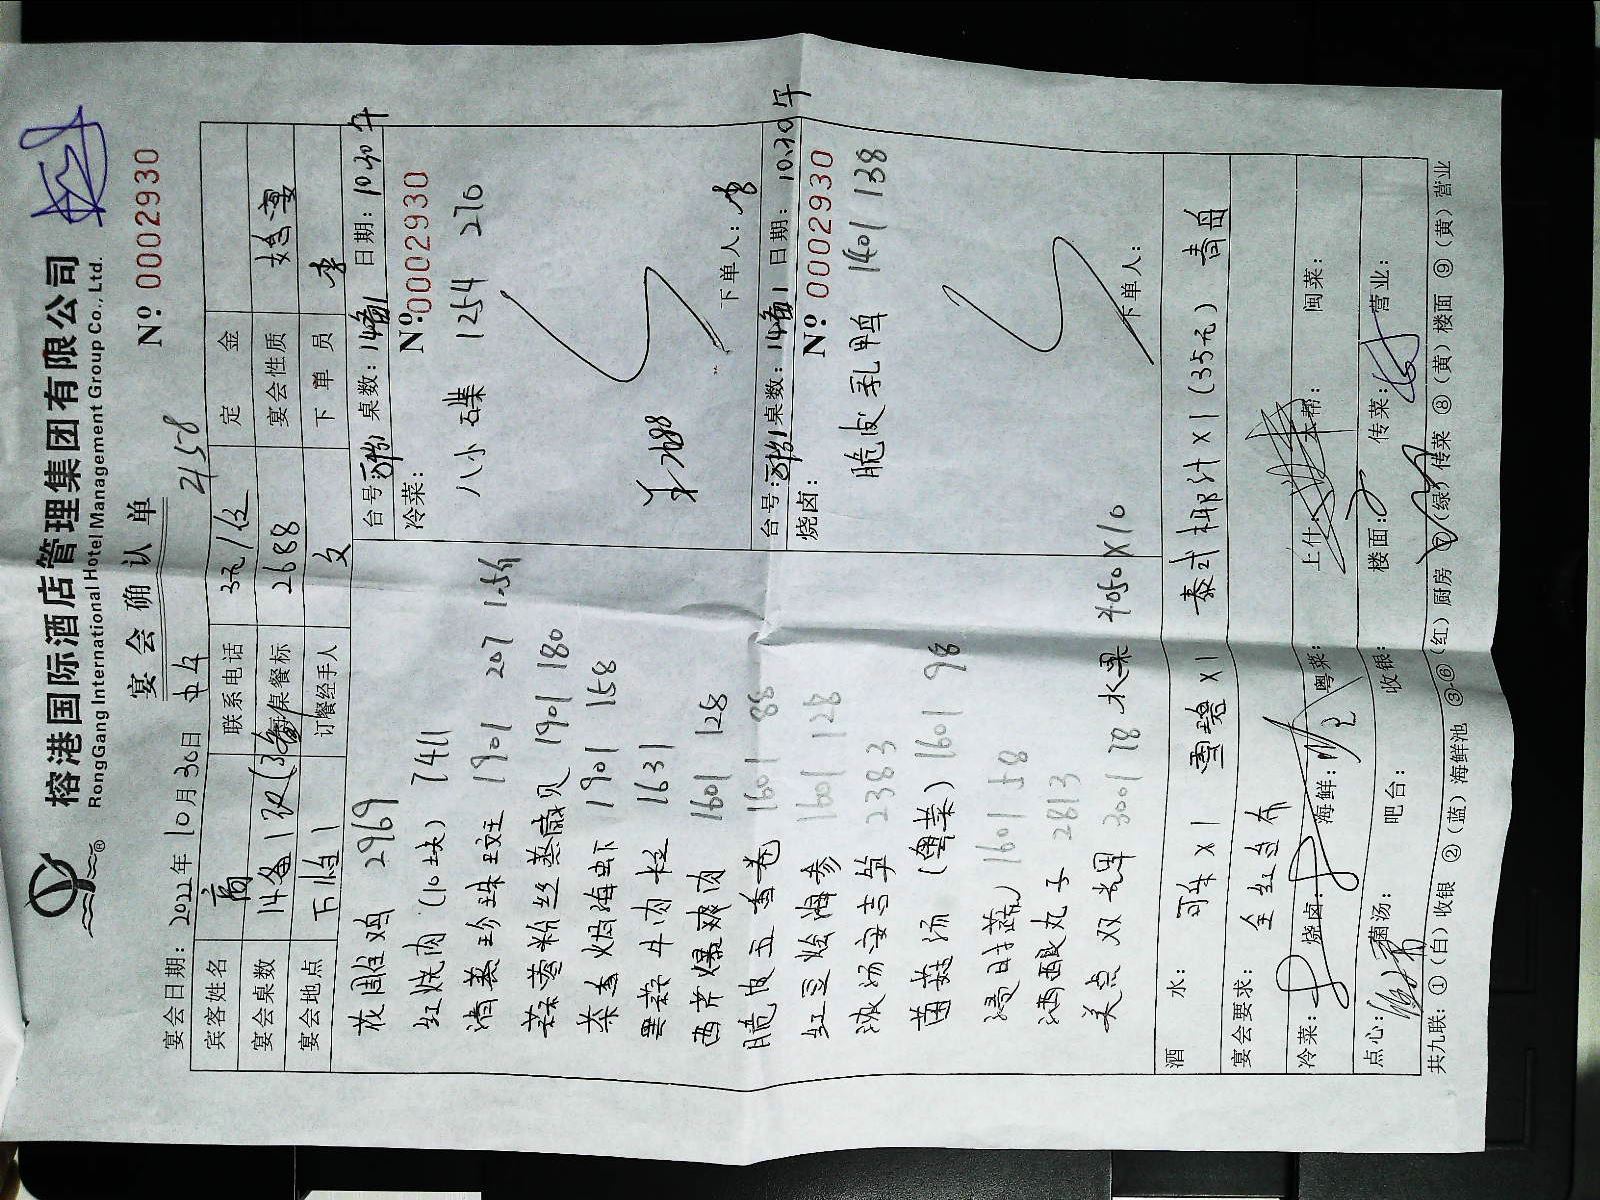 榕港国际酒店管理集团有限公司
RongGang International Hotel Management Group Co., Ltd.
宴会确认单
Nº 0002930
宴会日期: 2022年10月30日
2458
宾客姓名 商 联系电话 定金
宴会桌数 餐标 2688 宴会性质
宴会地点 订餐经手人 下单员 李
花雕鸡 2969
红烧肉 (10块) 741
清蒸珍珠斑 1901 207
蒜蓉粉丝蒸扇贝 1901 180
茶香焗海虾 1901 158
黑蒜牛肉粒 1631
西芹爆爽肉 1601 128
脆皮五香卷 1601 88
红豆烩海参 1601 128
浓汤安吉笋 2383
菌菇汤 (粤菜) 1601 98
时蔬 1601 58
酸丸子 2813
美点双辉 3001 18 水果 4050 X10
台号: 桌数: 日期: 10.30 午
冷菜:
Nº 0002930
八小碟 1254 270
下单人: 李
台号: 桌数: 日期: 10.30 午
烧卤:
Nº 0002930
脆皮乳鸭 1401 138
下单人:
酒水: 可乐 X1 雪碧 X1 泰式椰汁 X1 (35元)
宴会要求: 全红台布
冷菜: 烧卤: 海鲜: 粤菜: 上什: 本帮: 闽菜:
点心: 菌汤: 吧台: 收银: 楼面: 传菜: 营业:
共九联: ①(白)收银 ②(蓝)海鲜池 ③-⑥(红)厨房 ⑦(绿)传菜 ⑧(黄)楼面 ⑨(黄)营业